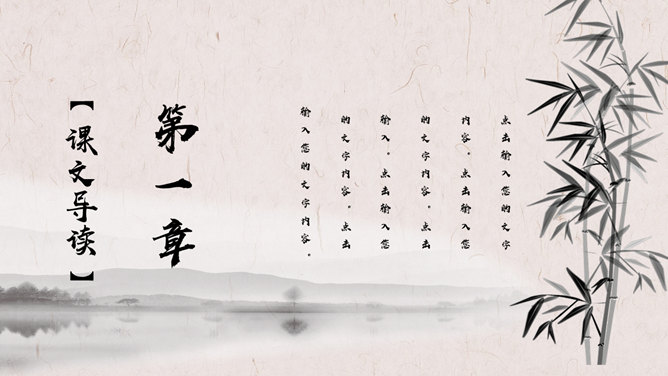 第一章
【课文导读】
点击输入您的文字
内容。点击输入您
的文字内容。点击
输入。点击输入您
的文字内容。点击
输入您的文字内容。